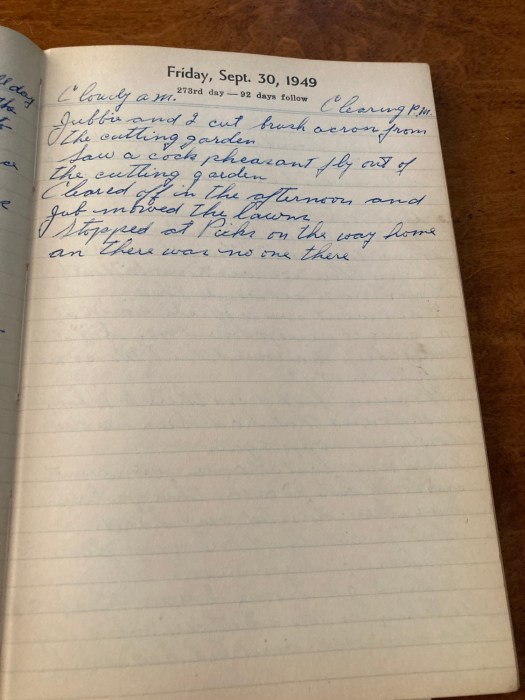 Friday, Sept. 30, 1949
273rd day — 92 days follow
Cloudy a.m. Clearing P.M.
Jubbie and I cut brush across from
the cutting garden
Saw a cock pheasant fly out of
the cutting garden
Cleared off in the afternoon and
Jub mowed the lawns
Stopped at on the way home
an there was no one there
ll day